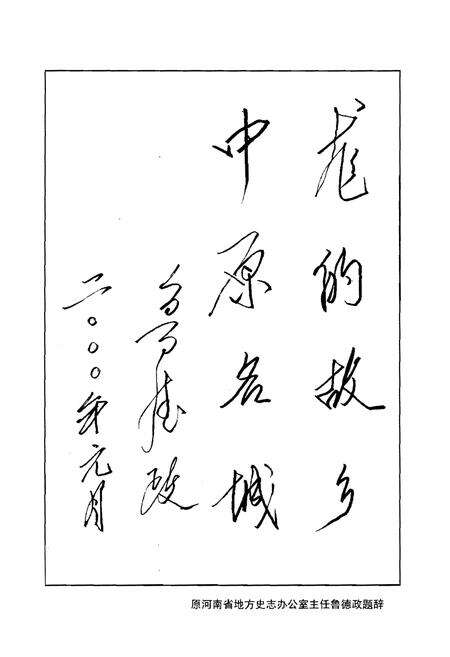 龙的故乡
中原名城
鲁德政
二〇〇〇年元月
原河南省地方史志办公室主任鲁德政题辞